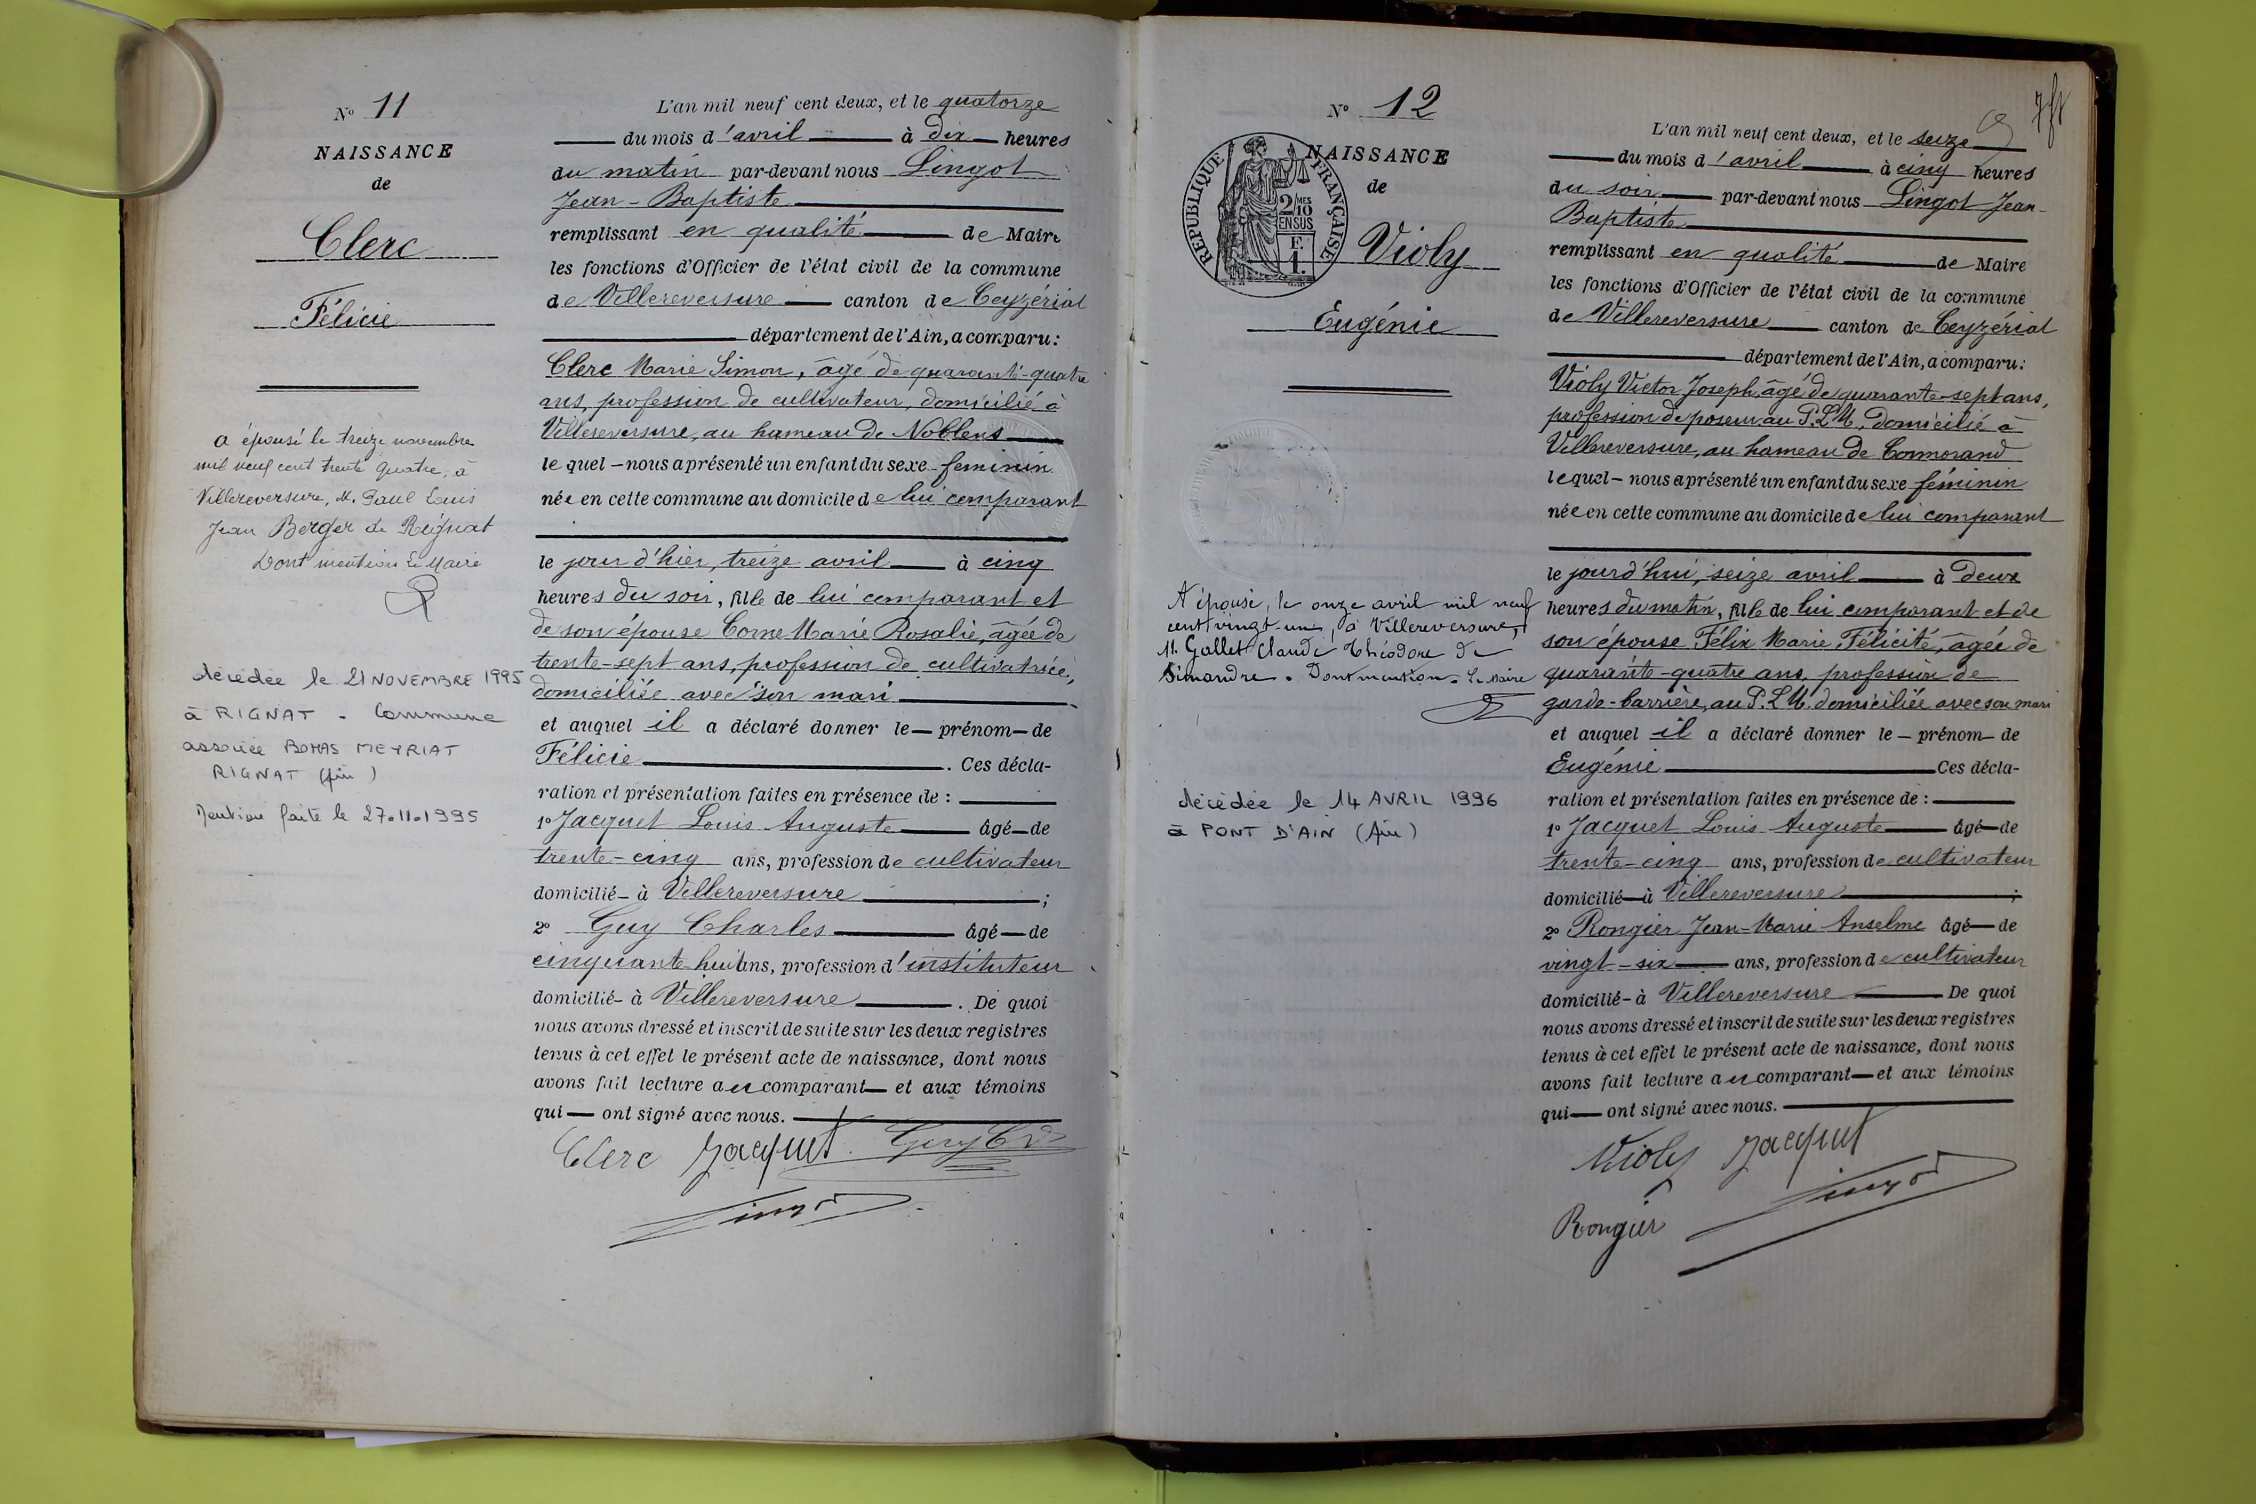 N° 11
NAISSANCE
de
Clerc
Félicie
a épousé le treize novembre
mil neuf cent trente quatre, à
Villereversure, M. Paul Louis
Jean Berger de Rignat
Dont mention Le Maire
décédée le 21 NOVEMBRE 1995
à RIGNAT - Commune
associée BOHAS MEYRIAT
RIGNAT (Ain)
Mention faite le 27.11.1995
L'an mil neuf cent deux, et le quatorze
du mois d'avril à dix heures
du matin par-devant nous Lingot
Jean-Baptiste
remplissant en qualité de Maire
les fonctions d'Officier de l'état civil de la commune
de Villereversure canton de Ceyzériat
département de l'Ain, a comparu:
Clerc Marie Simon, âgé de quarante-quatre
ans, profession de cultivateur, domicilié à
Villereversure, au hameau de Noblens
le quel - nous a présenté un enfant du sexe féminin
née en cette commune au domicile de lui comparant
le jour d'hier, treize avril à cinq
heures du soir, fille de lui comparant et
de son épouse Corne Marie Rosalie, âgée de
trente-sept ans, profession de cultivatrice,
domiciliée avec son mari
et auquel il a déclaré donner le - prénom - de
Félicie. Ces décla-
ration et présentation faites en présence de :
1° Jacquet Louis Auguste âgé - de
trente-cinq ans, profession de cultivateur
domicilié - à Villereversure ;
2° Guy Charles âgé - de
cinquante huit ans, profession d'instituteur
domicilié - à Villereversure. De quoi
nous avons dressé et inscrit de suite sur les deux registres
tenus à cet effet le présent acte de naissance, dont nous
avons fait lecture au comparant - et aux témoins
qui - ont signé avec nous.
Clerc Jacquet Guy Ch
Lingot
7
N° 12
NAISSANCE
de
RÉPUBLIQUE FRANÇAISE
2/10 MES
EN SUS
F.
1.
Violy
Eugénie
A épousé, le onze avril mil neuf
cent vingt un, à Villereversure,
M. Gallet Claude Théodore de
Simandre. Dont mention. Le Maire
décédée le 14 AVRIL 1996
à PONT D'AIN (Ain)
L'an mil neuf cent deux, et le seize
du mois d'avril à cinq heures
du soir par-devant nous Lingot Jean-
Baptiste
remplissant en qualité de Maire
les fonctions d'Officier de l'état civil de la commune
de Villereversure canton de Ceyzériat
département de l'Ain, a comparu:
Violy Victor Joseph, âgé de quarante-sept ans,
profession de poseur au P.L.M, domicilié à
Villereversure, au hameau de Cormorand
lequel - nous a présenté un enfant du sexe féminin
née en cette commune au domicile de lui comparant
le jourd'hui, seize avril à deux
heures du matin, fille de lui comparant et de
son épouse Félix Marie Félicité, âgée de
quarante-quatre ans, profession de
garde-barrière, au P.L.M. domiciliée avec son mari
et auquel il a déclaré donner le - prénom - de
Eugénie Ces décla-
ration et présentation faites en présence de :
1° Jacquet Louis Auguste âgé - de
trente-cinq ans, profession de cultivateur
domicilié - à Villereversure ;
2° Rongier Jean-Marie Anselme âgé - de
vingt-six ans, profession de cultivateur
domicilié - à Villereversure De quoi
nous avons dressé et inscrit de suite sur les deux registres
tenus à cet effet le présent acte de naissance, dont nous
avons fait lecture au comparant - et aux témoins
qui - ont signé avec nous.
Violy Jacquet
Rongier Lingot